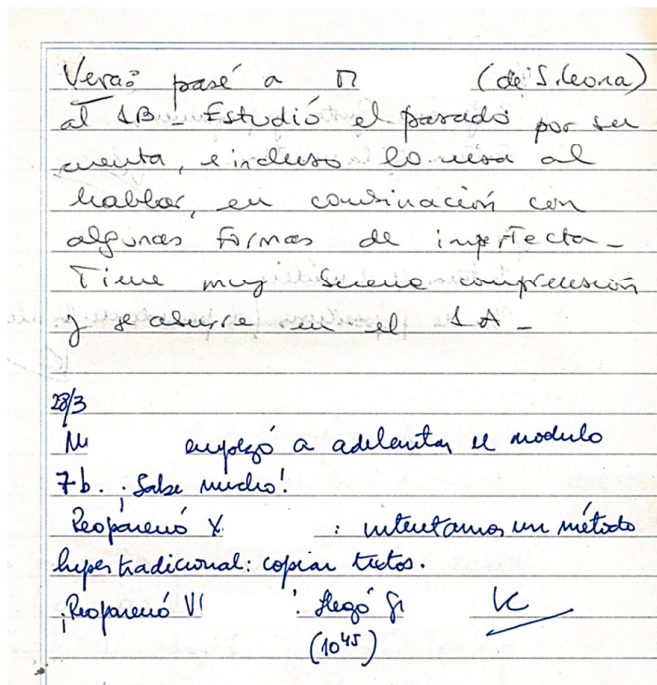 Vera: pasé a M (de S. leona)
al 1B - Estudió el pasado por su
cuenta, e incluso lo usa al
hablar, en combinación con
algunas formas de imperfecto -
Tiene muy buena comprensión
y se aburre en el 1A -
28/3
M empezó a adelantar el modulo
7b. ¡Sabe mucho!
Reapareció X : intentamos un método
hipertradicional: copiar textos.
¡Reapareció Vi ! Llegó Gi
(10 45)